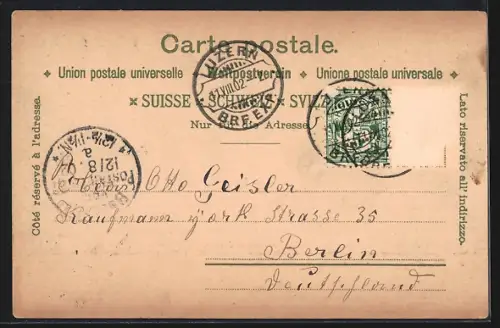 Carte postale.
Union postale universelle Weltpostverein Unione postale universale
SUISSE SCHWEIZ SVIZ
Nur für die Adresse.
Côté réservé à l'adresse.
Lato riservato all' indirizzo.
LUZERN
VIII.02
BRF. EXP.
Otto Geisler
Kaufmann york Strasse 35
Berlin
Deutschland